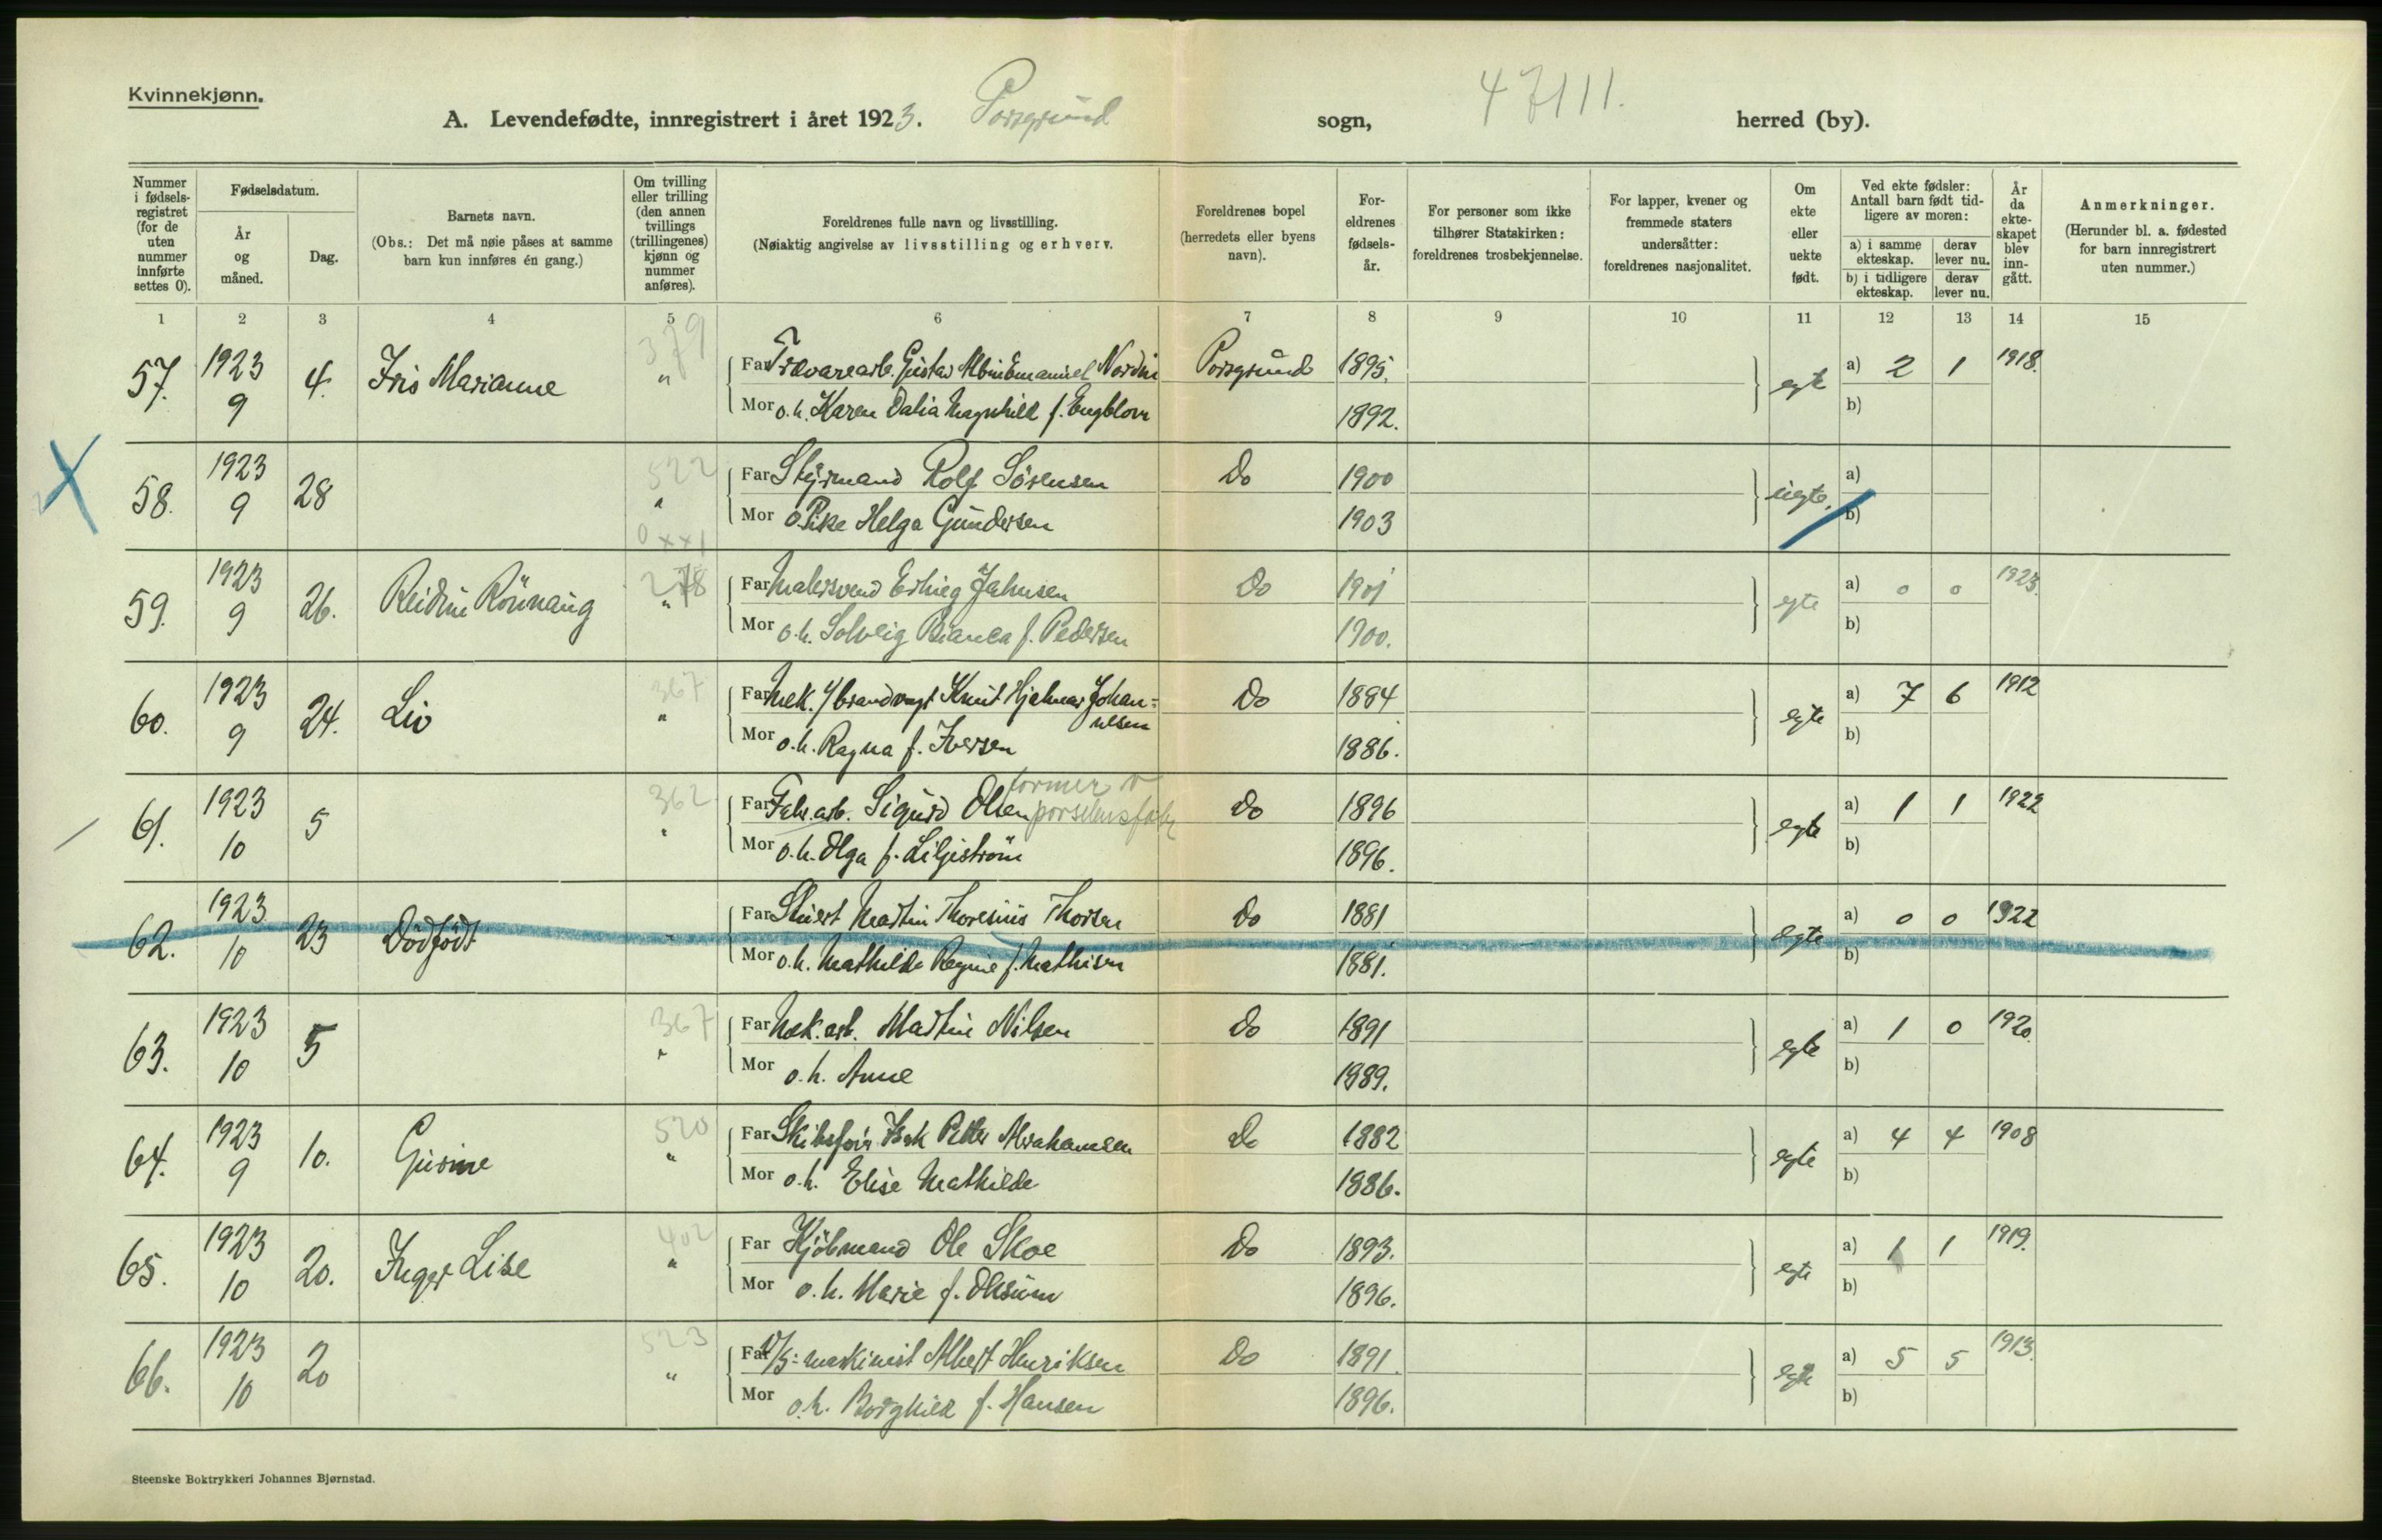 Kvinnekjønn.
A. Levendefødte, innregistrert i året 1923. Porsgrund sogn, 47111. herred (by).
Nummer i fødselsregistret (for de uten nummer innførte settes 0).
Fødselsdatum.
År og måned.
Dag.
Barnets navn.
(Obs.: Det må nøie påses at samme barn kun innføres én gang.)
Om tvilling eller trilling (den annen tvillings (trillingenes) kjønn og nummer anføres).
Foreldrenes fulle navn og livsstilling.
(Nøiaktig angivelse av livsstilling og erhverv.
Foreldrenes bopel (herredets eller byens navn).
Foreldrenes fødselsår.
For personer som ikke tilhører Statskirken: foreldrenes trosbekjennelse.
For lapper, kvener og fremmede staters undersåtter: foreldrenes nasjonalitet.
Om ekte eller uekte født.
Ved ekte fødsler: Antall barn født tidligere av moren:
a) i samme ekteskap.
derav lever nu.
b) i tidligere ekteskap.
derav lever nu.
År da ekteskapet blev inngått.
Anmerkninger.
(Herunder bl. a. fødested for barn innregistrert uten nummer.)
1 2 3 4 5 6 7 8 9 10 11 12 13 14 15
57. 1923 9 4. Iris Marianne 379 " Far Trævarearb. Gustav Albin Emanuel Nordin Porsgrund 1895. egte a) 2 1 1918.
Mor o.h. Karen Dalia Magnhild f. Engblom 1892. b)
58. 1923 9 28 522 " Far Styrmand Rolf Sörensen Do 1900 uegte. a)
0 xx1 Mor o. Pike Helga Gundersen 1903 b)
59. 1923 9 26. Reidun Rönnaug 278 " Far Malersvend Erling Jahnsen Do 1901 egte a) 0 0 1923.
Mor o.h. Solveig Bianca f. Pedersen 1900. b)
60. 1923 9 24. Liv 367 " Far Mek. / brandvagt Knut Hjalmar Johannesen Do 1884 egte a) 7 6 1912
Mor o.h. Ragna f. Iversen 1886. b)
61. 1923 10 5 362 " Far Fabr.arb. Sigurd Olsen former v porselensfabr Do 1896 egte a) 1 1 1922
Mor o.h. Olga f. Liljeström 1896. b)
62. 1923 10 23 Dödfödt " Far Stuert Martin Thoresius Thorsen Do 1881 egte a) 0 0 1922
Mor o.h. Mathilde Regine f. Mathisen 1881. b)
63. 1923 10 5 367 " Far Mek.arb. Martin Nilsen Do 1891 egte a) 1 0 1920.
Mor o.h. Anne 1889. b)
64. 1923 9 10. Gurine 520 " Far Skibsfører Isak Petter Abrahamsen Do 1882 egte a) 4 4 1908
Mor o.h. Elise Mathilde 1886. b)
65. 1923 10 20. Inger Lise 402 " Far Kjöbmand Ole Skoe Do 1893. egte a) 1 1 1919.
Mor o.h. Marie f. 1896. b)
66. 1923 10 20 523 " Far D/S: maskinist Albert Henriksen Do 1891. egte a) 5 5 1913.
Mor o.h. Borghild f. Hansen 1896. b)
Steenske Boktrykkeri Johannes Bjørnstad.